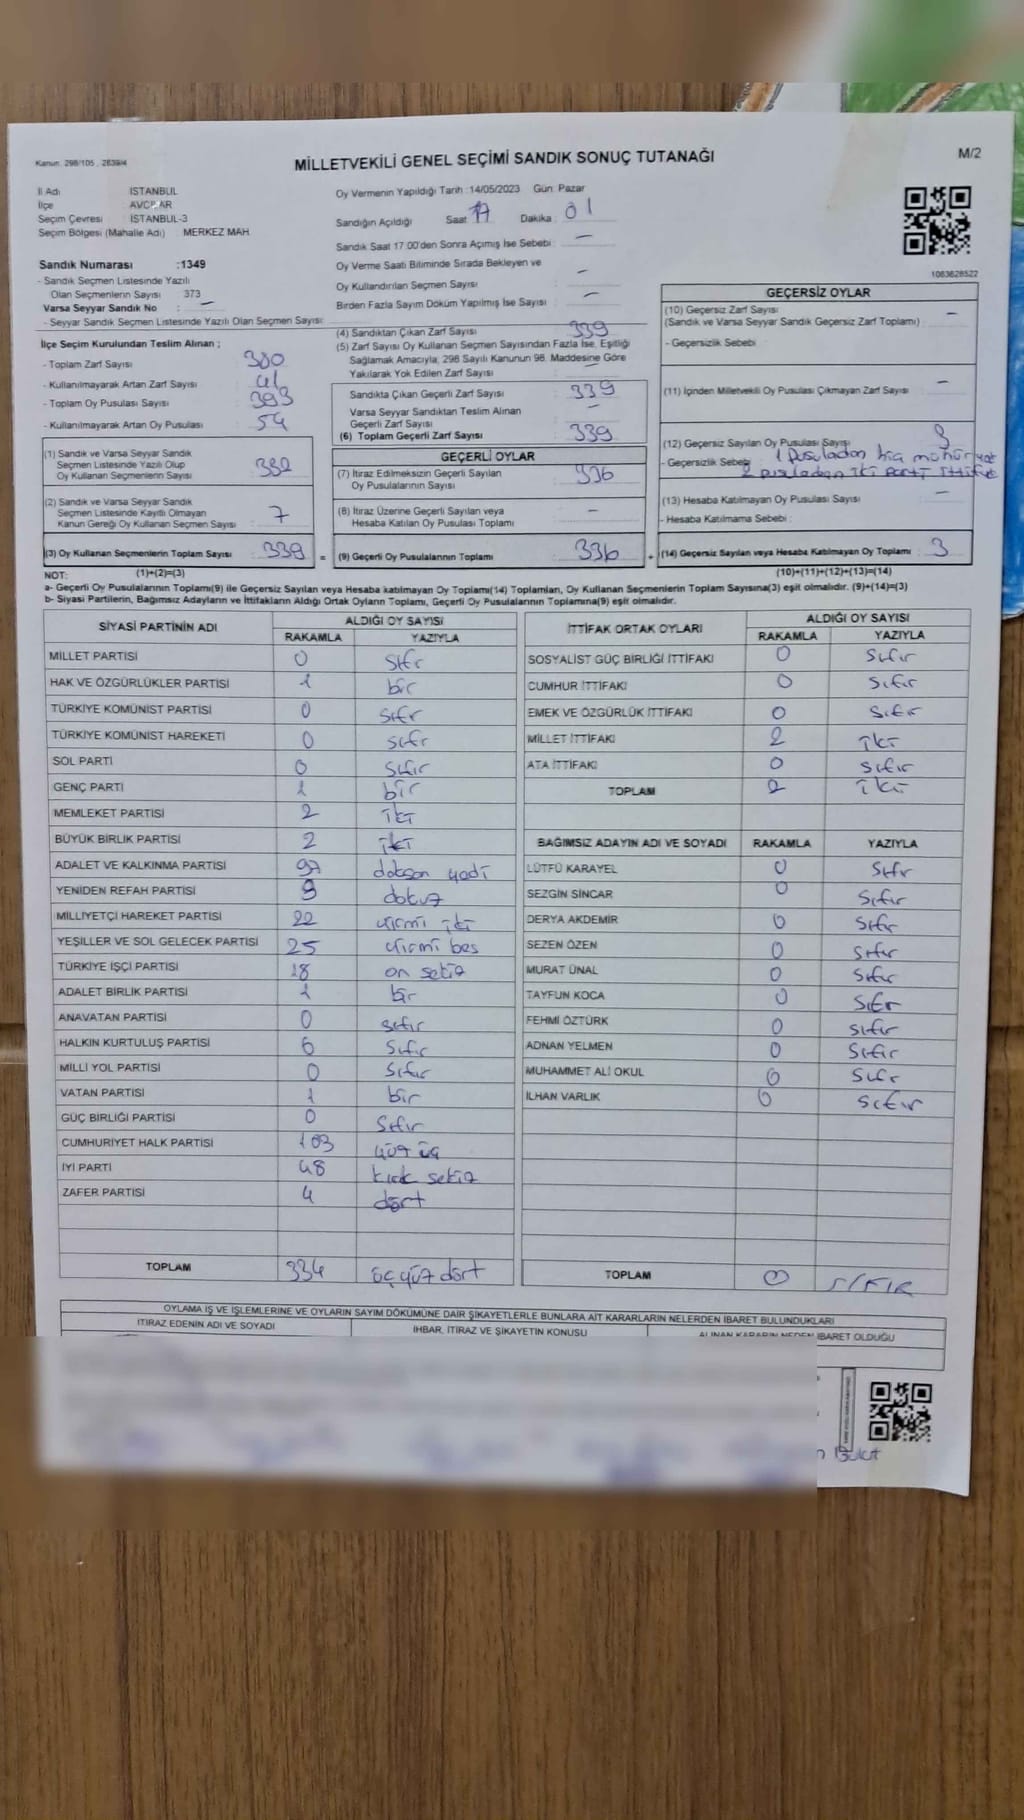 Kanun: 298/105, 2839/4
MİLLETVEKİLİ GENEL SEÇİMİ SANDIK SONUÇ TUTANAĞI
M/2
İl Adı İSTANBUL
İlçe AVCILAR
Seçim Çevresi İSTANBUL-3
Seçim Bölgesi (Mahalle Adı) : MERKEZ MAH
Sandık Numarası :1349
- Sandık Seçmen Listesinde Yazılı
Olan Seçmenlerin Sayısı : 373
Varsa Seyyar Sandık No : —
- Seyyar Sandık Seçmen Listesinde Yazılı Olan Seçmen Sayısı:
Oy Vermenin Yapıldığı Tarih :14/05/2023 Gün: Pazar
Sandığın Açıldığı Saat 17 Dakika : 01
Sandık Saat 17:00'den Sonra Açımış İse Sebebi : —
Oy Verme Saati Bitiminde Sırada Bekleyen ve
Oy Kullandırılan Seçmen Sayısı : —
Birden Fazla Sayım Döküm Yapılmış İse Sayısı : —
1063628522
İlçe Seçim Kurulundan Teslim Alınan ;
- Toplam Zarf Sayısı : 380
- Kullanılmayarak Artan Zarf Sayısı : 41
- Toplam Oy Pusulası Sayısı : 393
- Kullanılmayarak Artan Oy Pusulası : 54
(1) Sandık ve Varsa Seyyar Sandık
Seçmen Listesinde Yazılı Olup
Oy Kullanan Seçmen Sayısı : 332
(2) Sandık ve Varsa Seyyar Sandık
Seçmen Listesinde Kayıtlı Olmayan
Kanun Gereği Oy Kullanan Seçmen Sayısı : 7
(3) Oy Kullanan Seçmenlerin Toplam Sayısı : 339 =
(4) Sandıktan Çıkan Zarf Sayısı : 339
(5) Zarf Sayısı Oy Kullanan Seçmen Sayısından Fazla İse, Eşitliği
Sağlamak Amacıyla, 298 Sayılı Kanunun 98. Maddesine Göre
Yakılarak Yok Edilen Zarf Sayısı : —
Sandıkta Çıkan Geçerli Zarf Sayısı : 339
Varsa Seyyar Sandıktan Teslim Alınan
Geçerli Zarf Sayısı : —
(6) Toplam Geçerli Zarf Sayısı : 339
GEÇERLİ OYLAR
(7) İtiraz Edilmeksizin Geçerli Sayılan
Oy Pusulalarının Sayısı : 336
(8) İtiraz Üzerine Geçerli Sayılan veya
Hesaba Katılan Oy Pusulası Toplamı : —
(9) Geçerli Oy Pusulalarının Toplamı : 336 +
GEÇERSİZ OYLAR
(10) Geçersiz Zarf Sayısı : —
(Sandık ve Varsa Seyyar Sandık Geçersiz Zarf Toplamı)
- Geçersizlik Sebebi :
(11) İçinden Milletvekili Oy Pusulası Çıkmayan Zarf Sayısı : —
(12) Geçersiz Sayılan Oy Pusulası Sayısı : 3
- Geçersizlik Sebebi : 1 Pusuladan hiç mühür yok
2 pusuladan iki parti ittifak
(13) Hesaba Katılmayan Oy Pusulası Sayısı : —
- Hesaba Katılmama Sebebi :
(14) Geçersiz Sayılan veya Hesaba Katılmayan Oy Toplamı : 3
NOT: (1)+(2)=(3) (10)+(11)+(12)+(13)=(14)
a- Geçerli Oy Pusulalarının Toplamı(9) ile Geçersiz Sayılan veya Hesaba katılmayan Oy Toplamı(14) Toplamları, Oy Kullanan Seçmenlerin Toplam Sayısına(3) eşit olmalıdır. (9)+(14)=(3)
b- Siyasi Partilerin, Bağımsız Adayların ve İttifakların Aldığı Ortak Oyların Toplamı, Geçerli Oy Pusulalarının Toplamına(9) eşit olmalıdır.
SİYASİ PARTİNİN ADI ALDIĞI OY SAYISI
RAKAMLA YAZIYLA
MİLLET PARTİSİ 0 sıfır
HAK VE ÖZGÜRLÜKLER PARTİSİ 1 bir
TÜRKİYE KOMÜNİST PARTİSİ 0 sıfır
TÜRKİYE KOMÜNİST HAREKETİ 0 sıfır
SOL PARTİ 0 sıfır
GENÇ PARTİ 1 bir
MEMLEKET PARTİSİ 2 iki
BÜYÜK BİRLİK PARTİSİ 2 iki
ADALET VE KALKINMA PARTİSİ 97 doksan yedi
YENİDEN REFAH PARTİSİ 9 dokuz
MİLLİYETÇİ HAREKET PARTİSİ 22 yirmi iki
YEŞİLLER VE SOL GELECEK PARTİSİ 25 yirmi beş
TÜRKİYE İŞÇİ PARTİSİ 18 on sekiz
ADALET BİRLİK PARTİSİ 1 bir
ANAVATAN PARTİSİ 0 sıfır
HALKIN KURTULUŞ PARTİSİ 0 sıfır
MİLLİ YOL PARTİSİ 0 sıfır
VATAN PARTİSİ 1 bir
GÜÇ BİRLİĞİ PARTİSİ 0 sıfır
CUMHURİYET HALK PARTİSİ 103 yüz üç
İYİ PARTİ 48 kırk sekiz
ZAFER PARTİSİ 4 dört
TOPLAM 334 üç yüz dört
İTTİFAK ORTAK OYLARI ALDIĞI OY SAYISI
RAKAMLA YAZIYLA
SOSYALİST GÜÇ BİRLİĞİ İTTİFAKI 0 sıfır
CUMHUR İTTİFAKI 0 sıfır
EMEK VE ÖZGÜRLÜK İTTİFAKI 0 sıfır
MİLLET İTTİFAKI 2 iki
ATA İTTİFAKI 0 sıfır
TOPLAM 2 iki
BAĞIMSIZ ADAYIN ADI VE SOYADI RAKAMLA YAZIYLA
LÜTFÜ KARAYEL 0 sıfır
SEZGİN SİNCAR 0 sıfır
DERYA AKDEMİR 0 sıfır
SEZEN ÖZEN 0 sıfır
MURAT ÜNAL 0 sıfır
TAYFUN KOCA 0 sıfır
FEHMİ ÖZTÜRK 0 sıfır
ADNAN YELMEN 0 sıfır
MUHAMMET ALİ OKUL 0 sıfır
İLHAN VARLIK 0 sıfır
TOPLAM 0 SIFIR
OYLAMA İŞ VE İŞLEMLERİNE VE OYLARIN SAYIM DÖKÜMÜNE DAİR ŞİKAYETLERLE BUNLARA AİT KARARLARIN NELERDEN İBARET BULUNDUKLARI
İTİRAZ EDENİN ADI VE SOYADI İHBAR, İTİRAZ VE ŞİKAYETİN KONUSU ALINAN KARARIN NEDEN İBARET OLDUĞU
Bulut